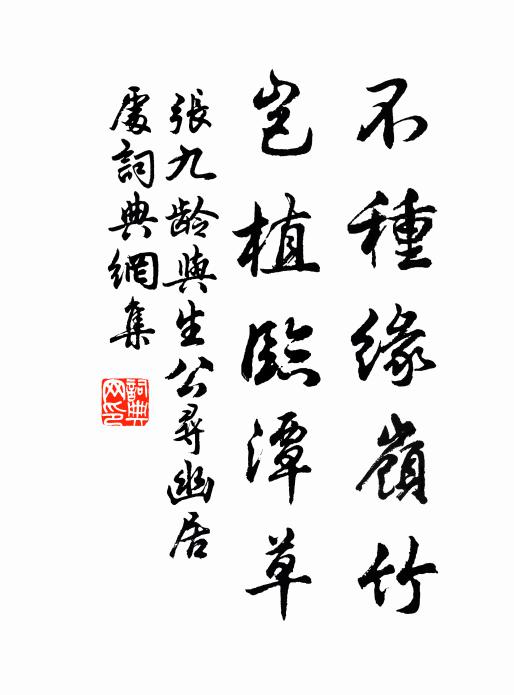 不種緣嶺竹
豈植臨潭草
張九龄與生公尋幽居
處詞典網集
詞典网印